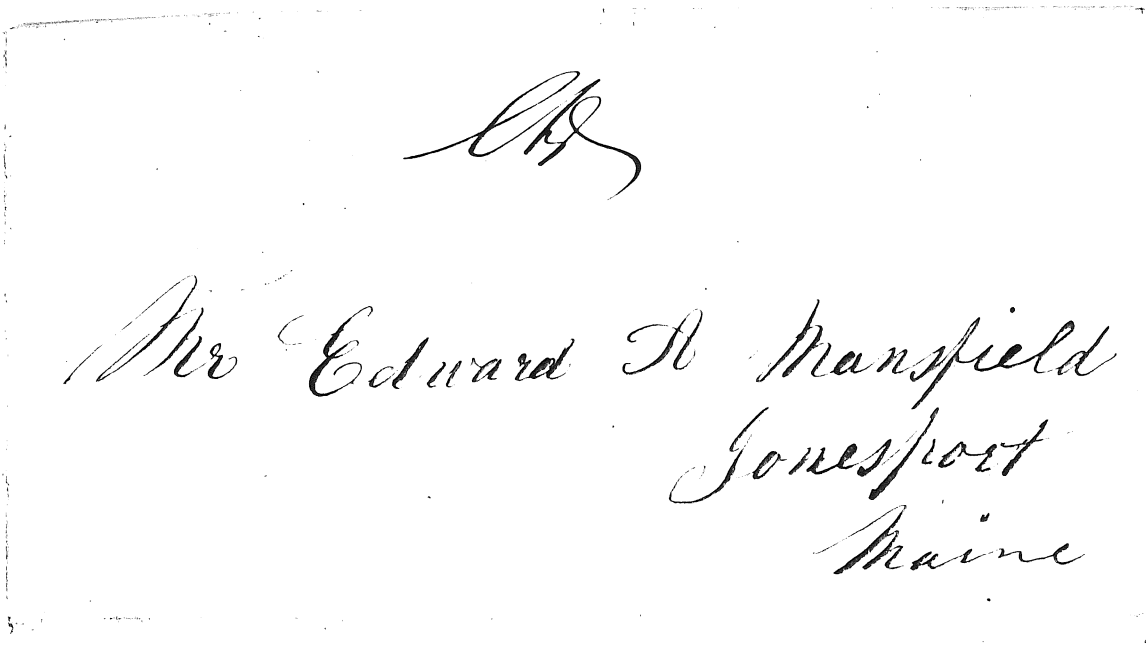 Mr Edward A Mansfield
Jonesport
Maine